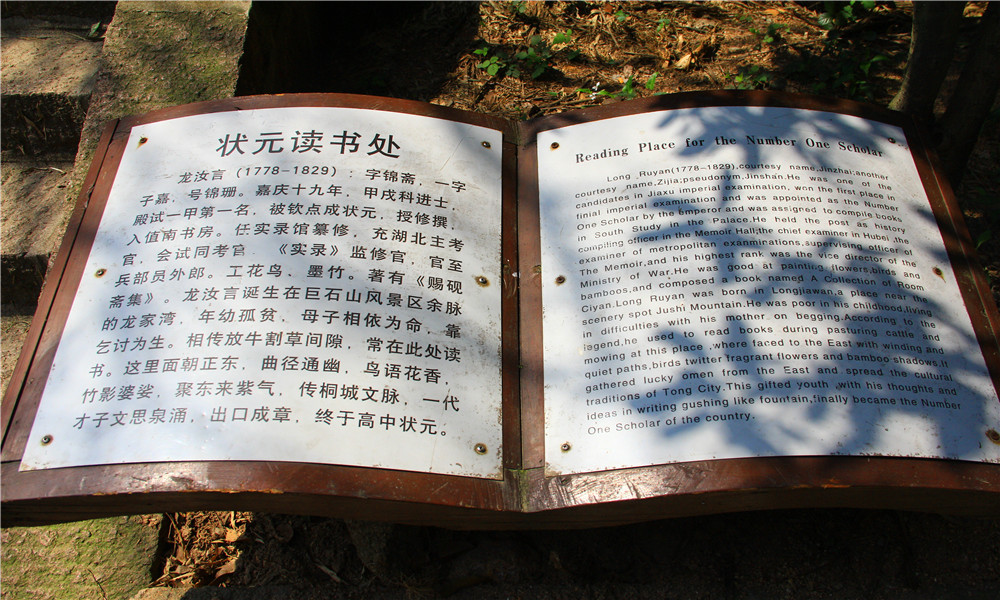 状元读书处
龙汝言（1778-1829）：字锦斋，一字
子嘉，号锦珊。嘉庆十九年，甲戌科进士，
殿试一甲第一名，被钦点成状元，授修撰，
入值南书房。任实录馆纂修，充湖北主考
官，会试同考官，《实录》监修官，官至
兵部员外郎。工花鸟、墨竹。著有《赐砚
斋集》。龙汝言诞生在巨石山风景区余脉
的龙家湾，年幼孤贫，母子相依为命，靠
乞讨为生。相传放牛割草间隙，常在此处读
书。这里面朝正东，曲径通幽，鸟语花香，
竹影婆娑，聚东来紫气，传桐城文脉，一代
才子文思泉涌，出口成章，终于高中状元。
Reading Place for the Number One Scholar
Long Ruyan(1778-1829),courtesy name,Jinzhai;another
courtesy name,Zijia;pseudonym,Jinshan.He was one of the
candidates in Jiaxu imperial examination, won the first place in
finial imperial examination and was appointed as the Number
One Scholar by the emperor and was assigned to compile books
in South Study in the Palace.He held the post as history
compiling officer in the Memoir Hall;the chief examiner in Hubei ,the
examiner of metropolitan exanminations,supervising officer of
The Memoir,and his highest rank was the vice director of the
Ministry of War.He was good at painting flowers,birds and
bamboos,and composed a book named A Collection of Room
Ciyan.Long Ruyan was born in Longjiawan,a place near the
scenery spot Jushi Mountain.He was poor in his childhood,living
in difficulties with his mother on begging.According to the
lagend,he used to read books during pasturing cattle and
mowing at this place ,where faced to the East with winding and
quiet paths,birds twitter fragrant flowers and bamboo shadows.It
gathered lucky omen from the East and spread the cultural
traditions of Tong City.This gifted youth ,with his thoughts and
ideas in writing gushing like fountain,finally became the Number
One Scholar of the country.